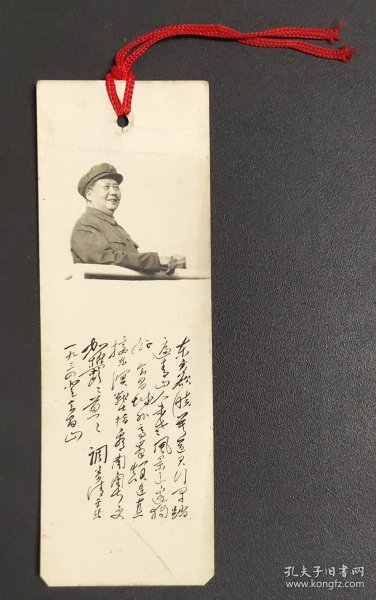 东方欲晓莫道君行早踏
遍青山人未老风景这边独
好会昌城外高峰颠连直
接东溟战士指看南粤更
加郁々葱々 调寄清平乐
一九三四登会昌山
孔夫子旧书网
www.kongfz.com